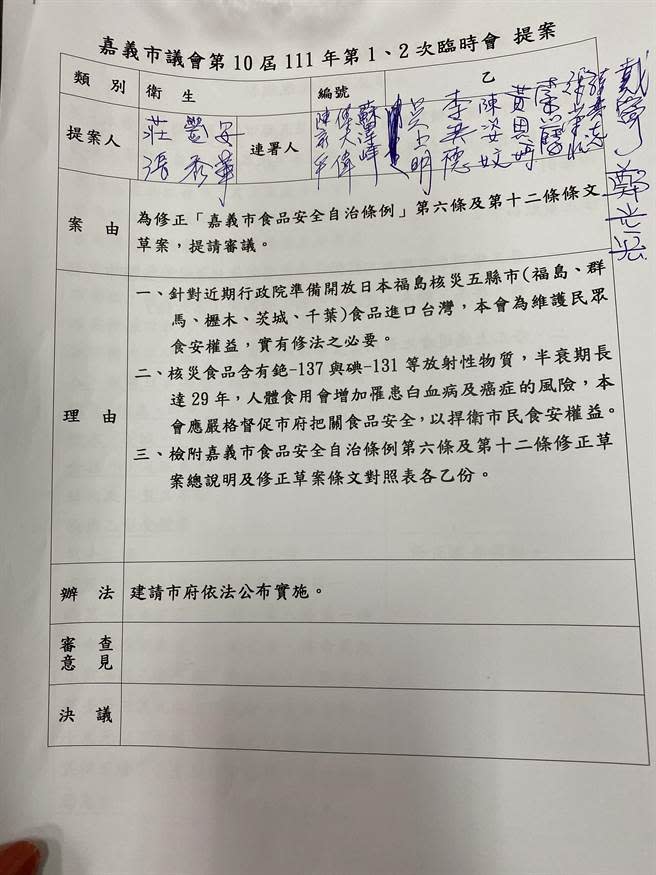 嘉義市議會第10屆111年第1、2次臨時會 提案
類 別 衛 生 編號 乙
提案人 連署人
李 陳 黃
德
案 由 為修正「嘉義市食品安全自治條例」第六條及第十二條條文
草案，提請審議。
一、針對近期行政院準備開放日本福島核災五縣市(福島、群
馬、櫪木、茨城、千葉)食品進口台灣，本會為維護民眾
食安權益，實有修法之必要。
二、核災食品含有銫-137與碘-131等放射性物質，半衰期長
達29年，人體食用會增加罹患白血病及癌症的風險，本
理 由 會應嚴格督促市府把關食品安全，以捍衛市民食安權益。
三、檢附嘉義市食品安全自治條例第六條及第十二條修正草
案總說明及修正草案條文對照表各乙份。
辦 法 建請市府依法公布實施。
審 查
意 見
決 議